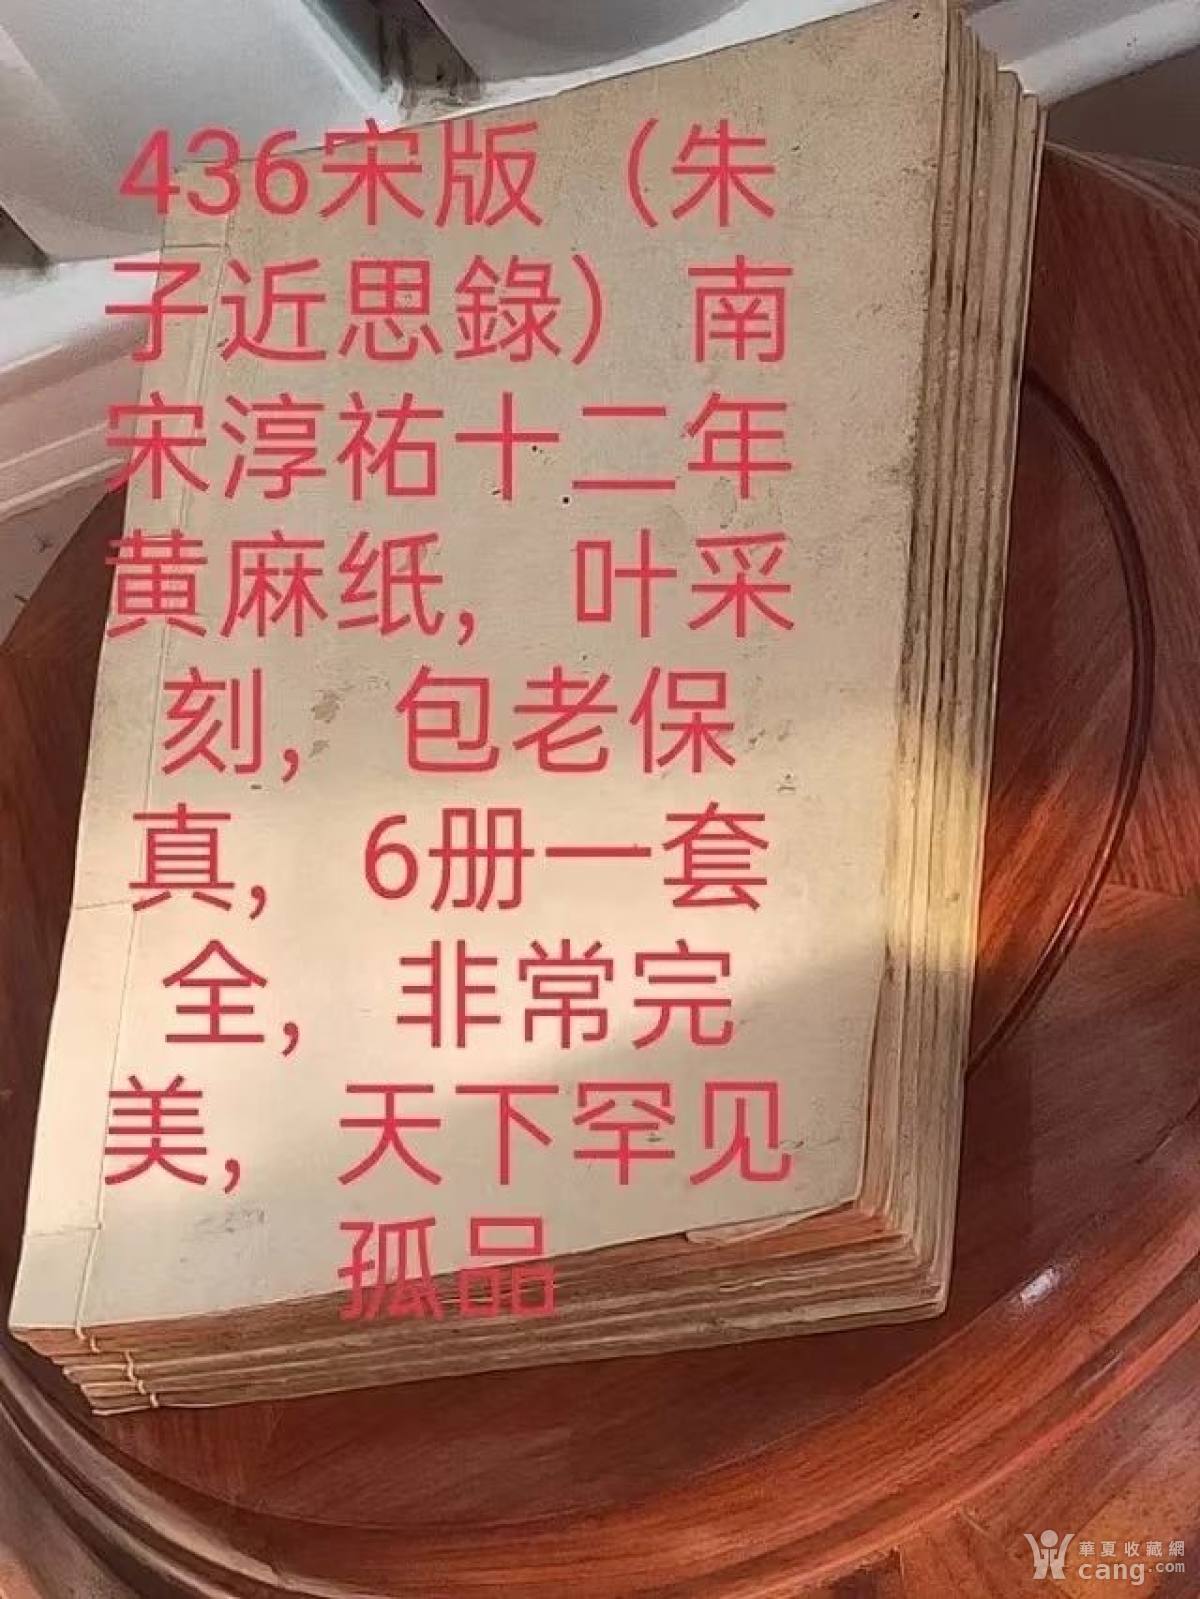 436宋版（朱
子近思錄）南
宋淳祐十二年
黄麻纸，叶采
刻，包老保
真，6册一套
全，非常完
美，天下罕见
孤品
華夏收藏網
cang.com